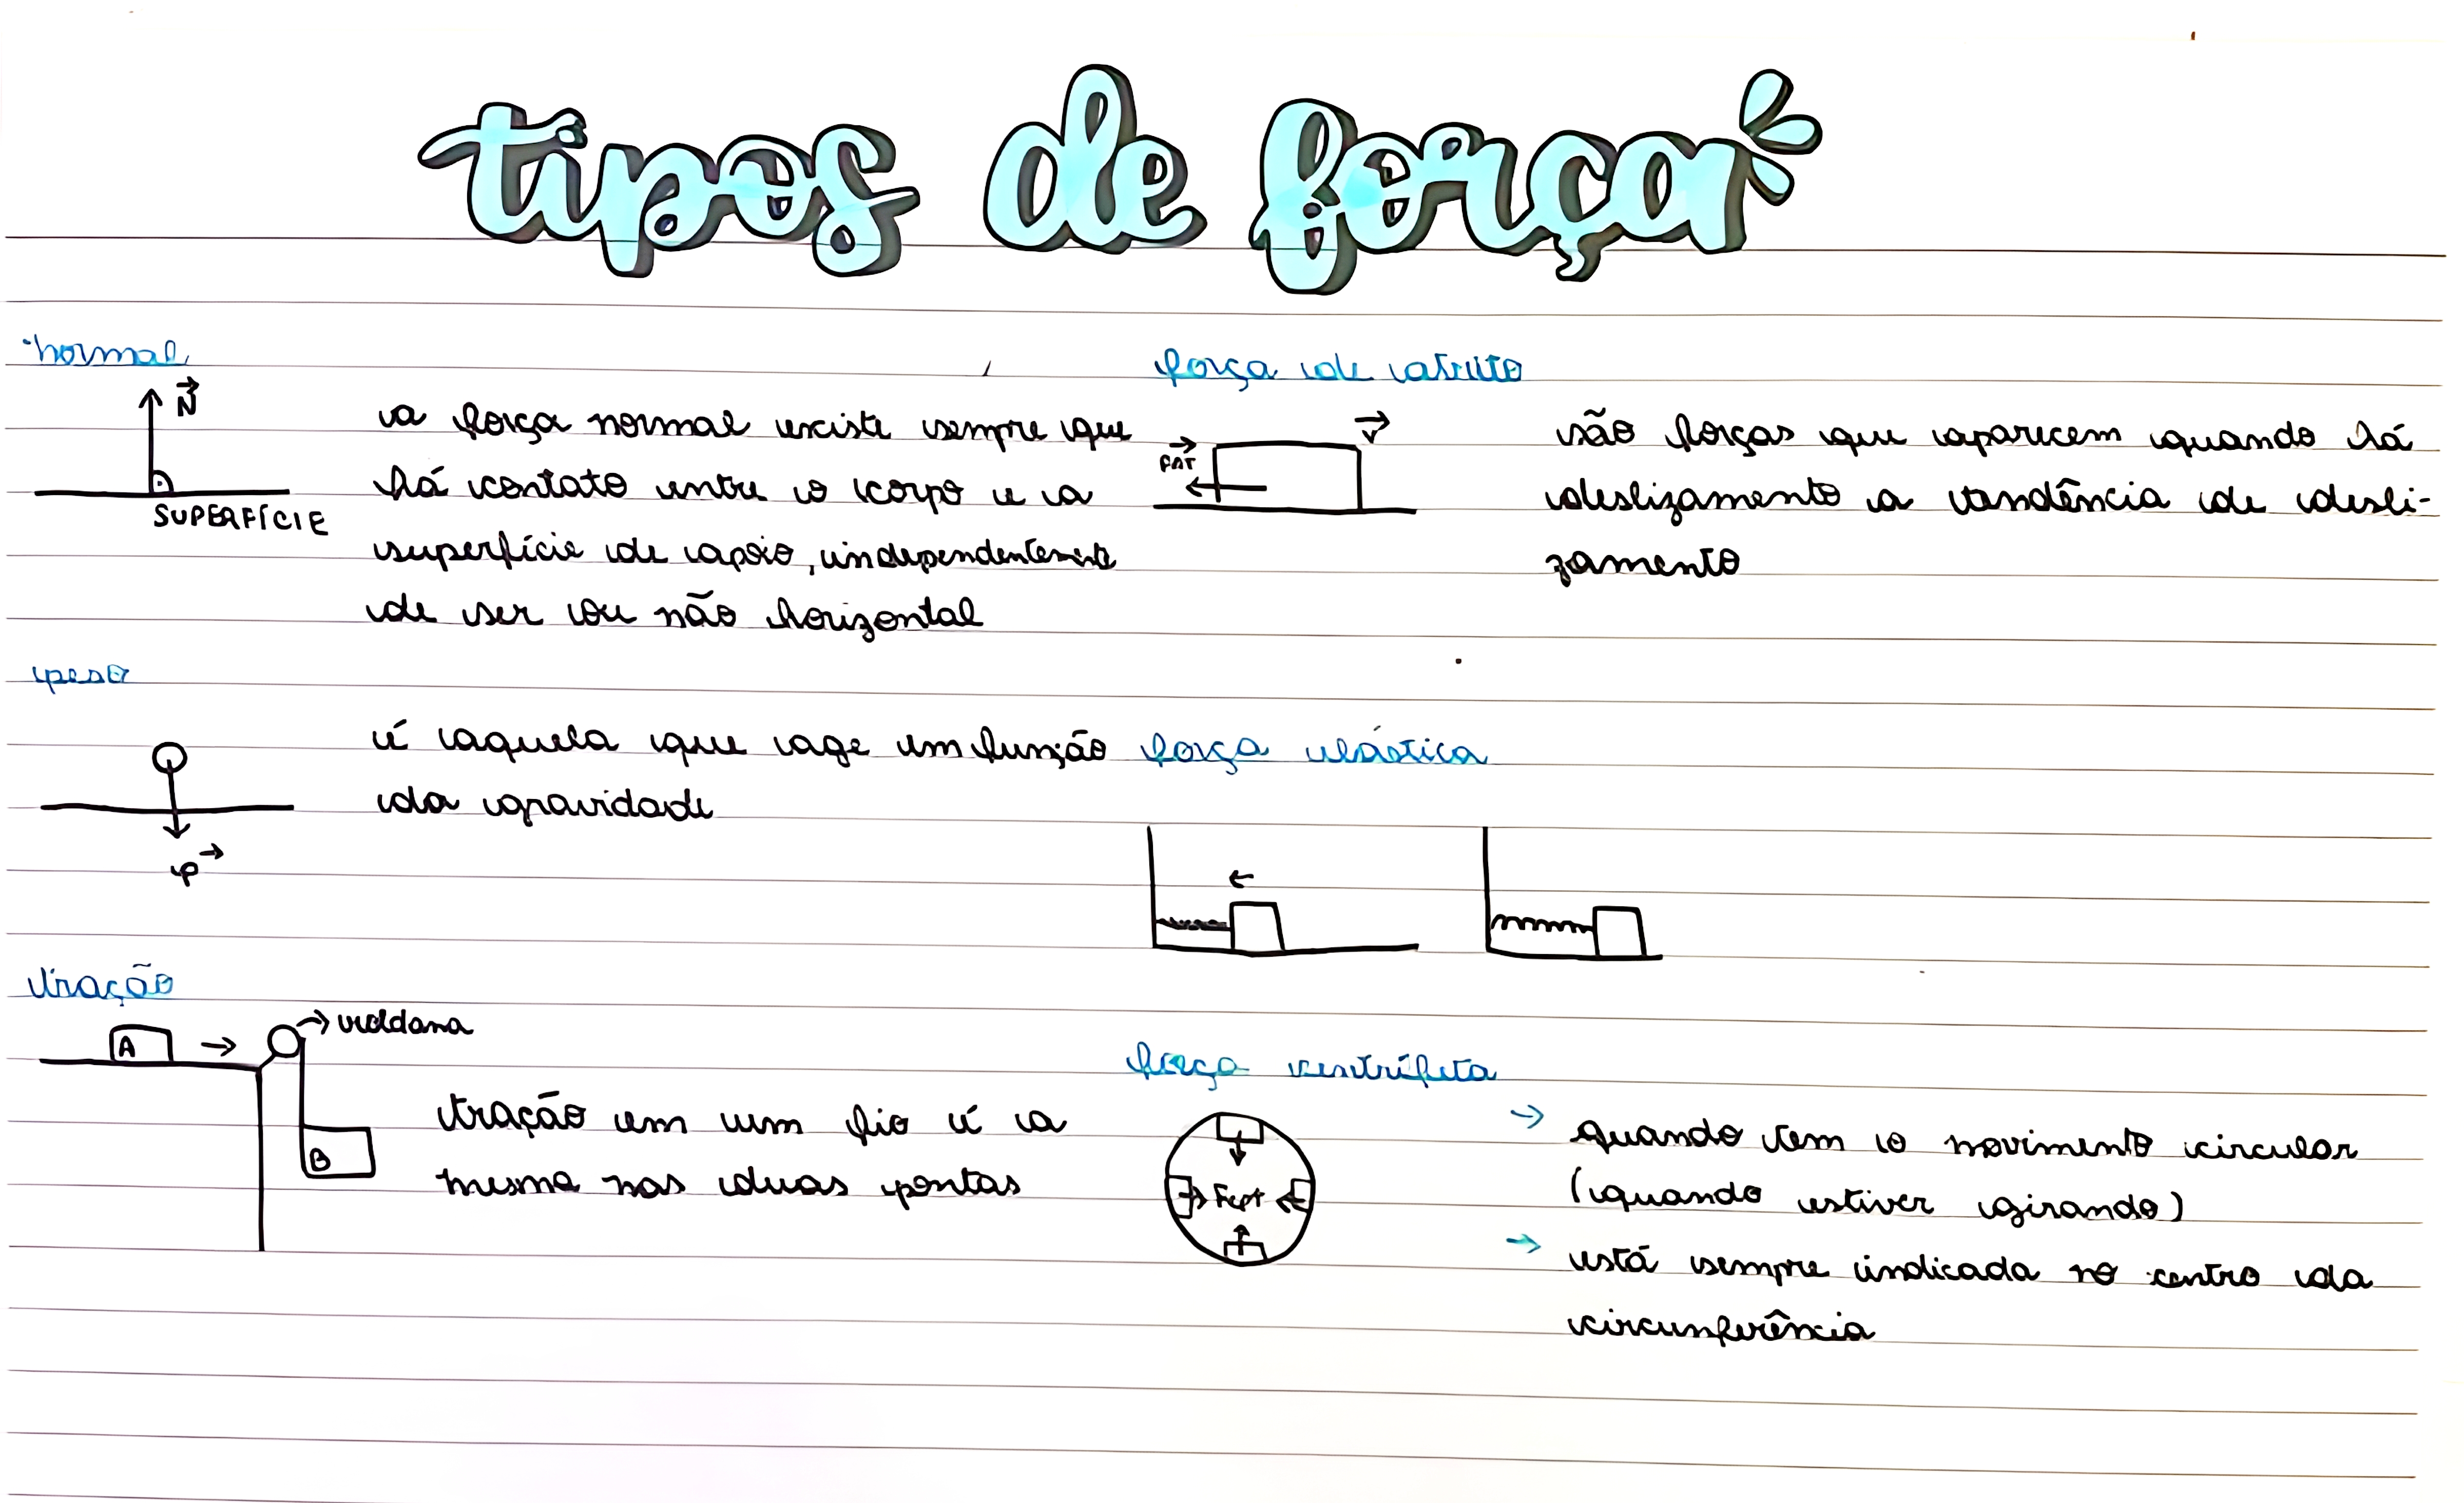 tipos de força
normal
N
SUPERFÍCIE
a força normal existe sempre que
há contato entre o corpo e a
superfície de apoio, independentemente
de ser ou não horizontal
peso
é aquela que age em função
da gravidade
P
tração
A
roldana
B
tração em um fio é a
mesma nas duas pontas
força de atrito
FAT
V
são forças que aparecem quando há
deslizamento a tendência de desli-
zamento
força elástica
força centrípeta
Fcpt
→ quando tem o movimento circular
(quando estiver girando)
→ está sempre indicada no centro da
circunferência